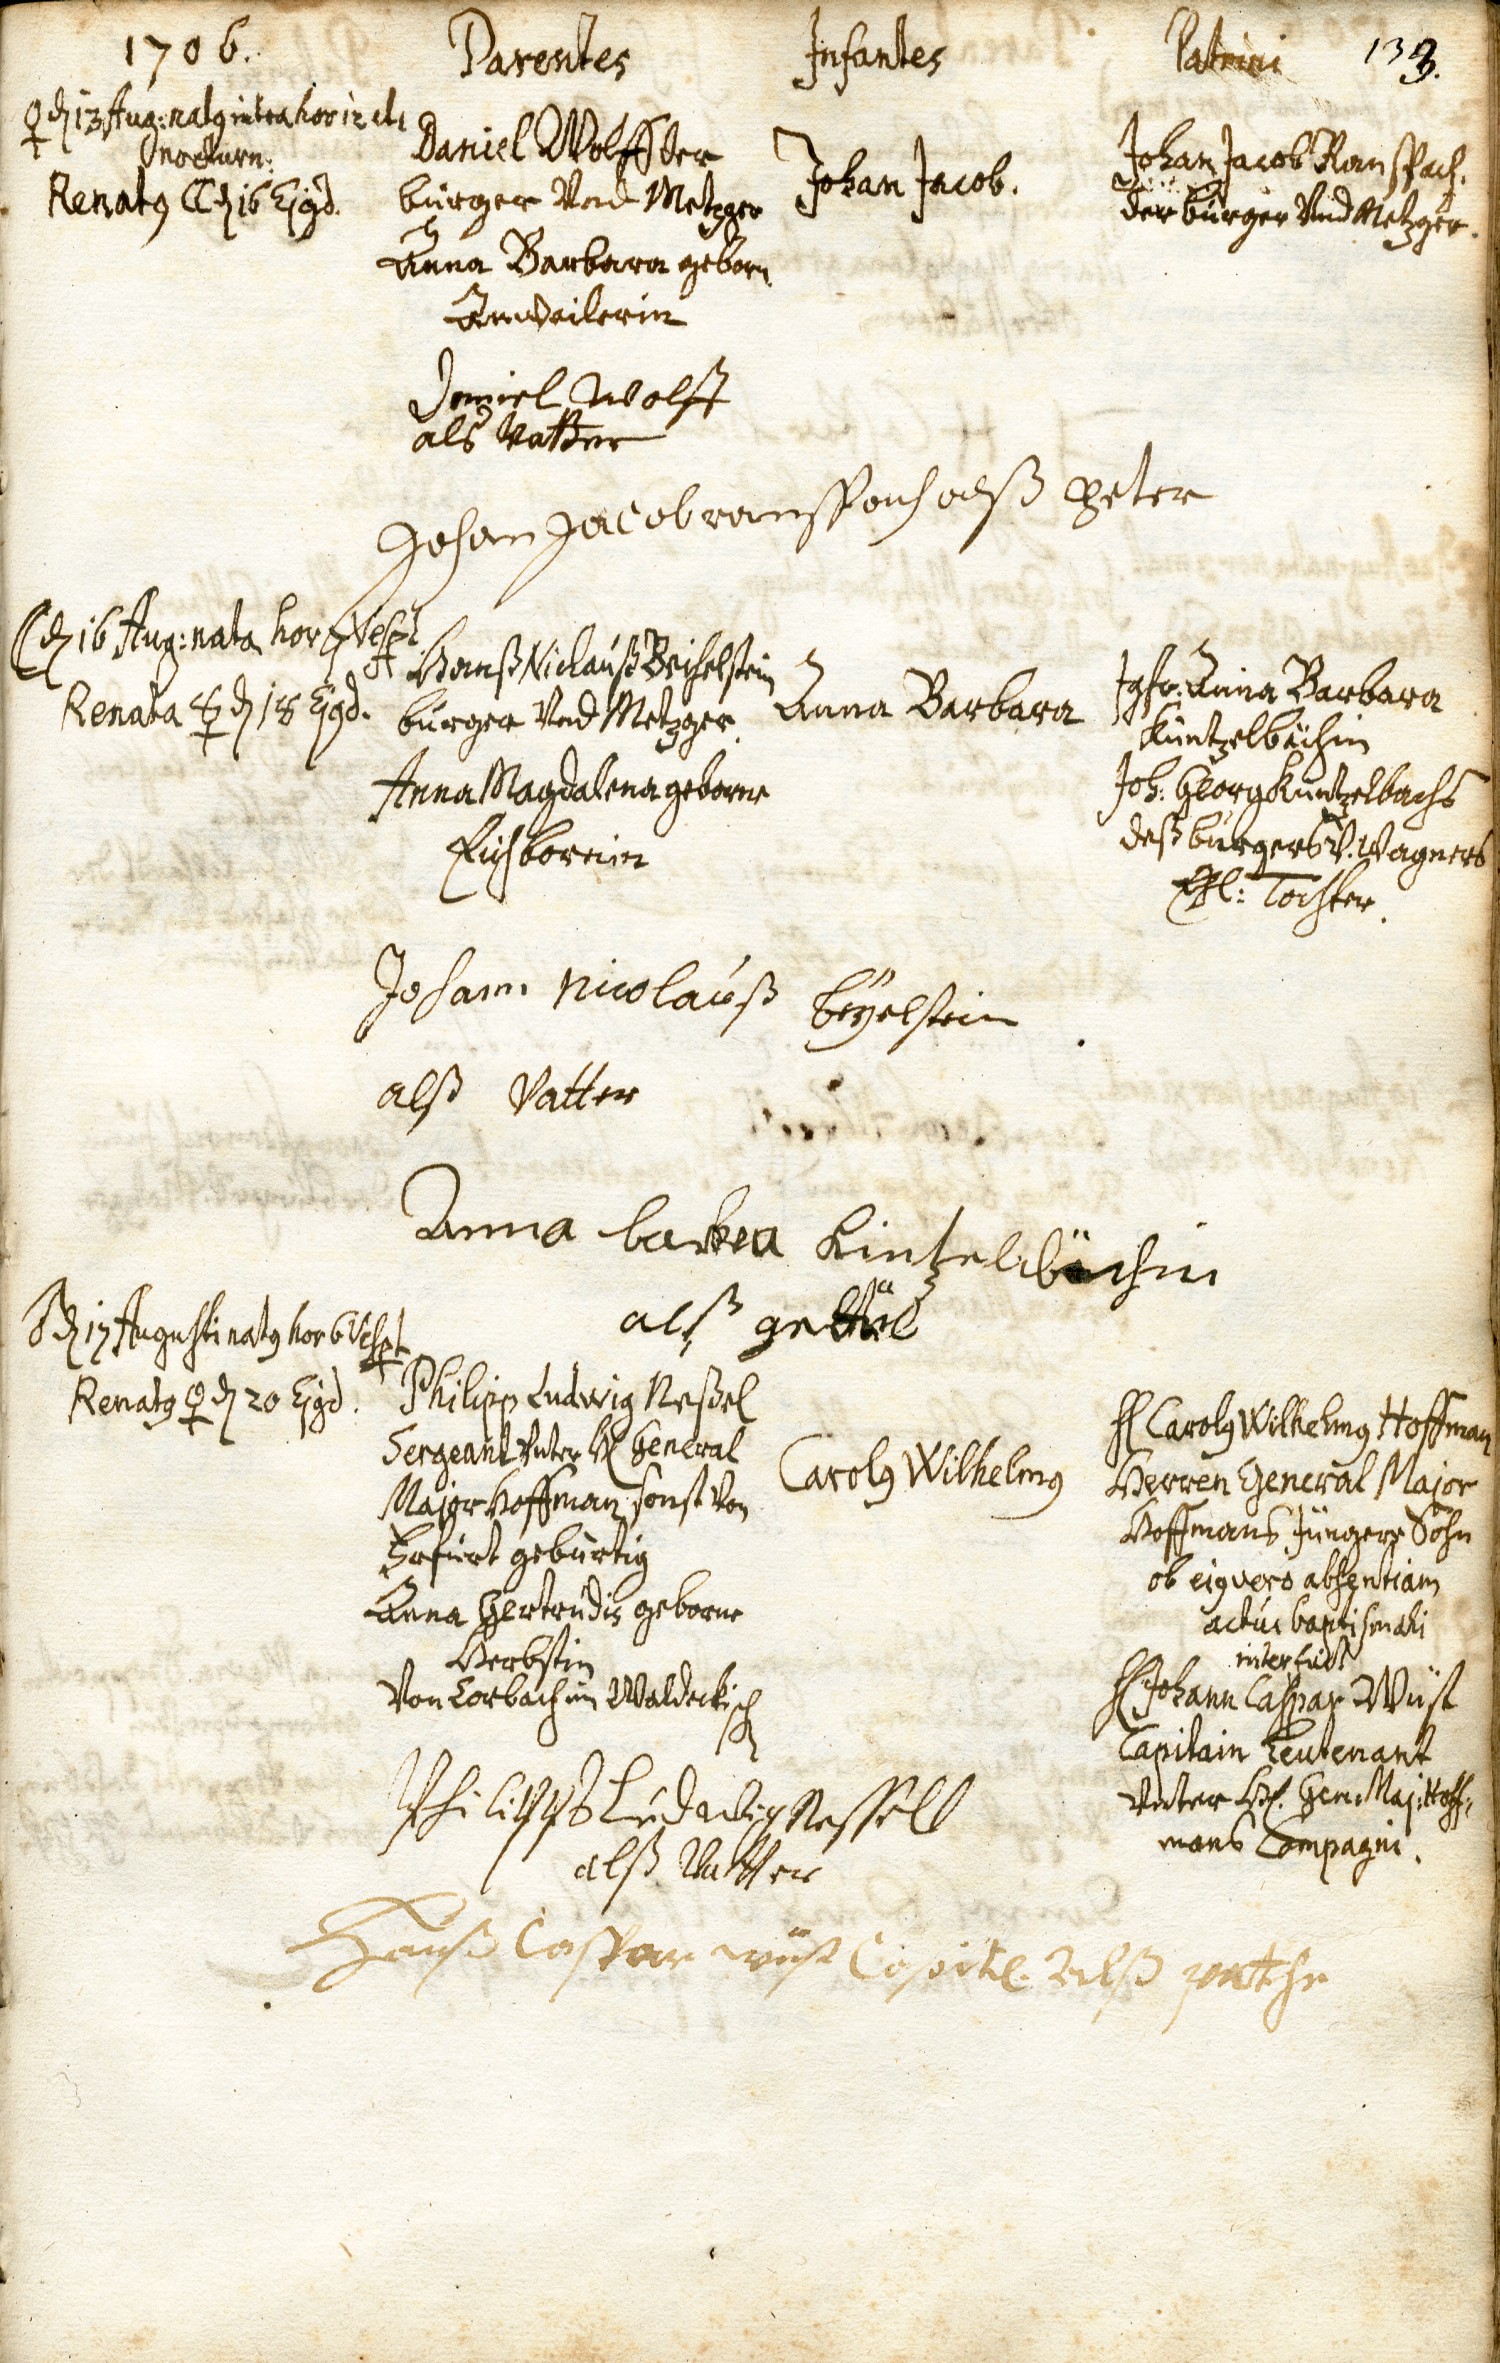 1706. Parentes Infantes Patrini 133.
♀ d 13 Aug: natg intra hor 12 et 1
nocturn:
Renatg ☾ d 16 Ejgd.
Daniel Wolff der
burger Vnd Metzger
Anna Barbara geborn
Anweilerin
Johan Jacob.
Johan Jacob Ranspach.
der burger Vnd Metzger.
Daniel Wolff
als Vatter
Johan Jacob ranspach alß peter
☾ d 16 Aug: nata hor Vesp
Renata ☿ d 18 Ejgd.
Hanß Niclauß Beihelstein
burger Vnd Metzger.
Anna Magdalena geborne
Eichbornin
Anna Barbara
Jgfr: Anna Barbara
Küntzelbächin
Joh: Georg Küntzelbachs
deß burgers V. Wagners
Ehl: Tochter.
Johann Nicolauß beÿelstein
alß Vatter
Anna barbea Kintzelbächin
alß gettel
♂ d 17 Augusti natg hor 6 Vesp
Renatg ♀ d 20 Ejgd.
Philipp Ludwig Neßel
Sergeant Vnter H General
Major Hoffman, sonst Von
Erfurt gebürtig
Anna Gertrudis geborne
Herbstin
Von Corbach im Waldeckisch
Carolg Wilhelmg
H Carolg Wilhelmg Hoffman
Herren General Major
Hoffmans Jüngere Sohn
ob eigvero absentiam
actui baptismali
interfuit
H Johann Caspar Wüst
Capitain Leutenant
Vnter H. Gen: Maj: Hoff-
mans Compagni.
Philipps Ludwig Nessell
alß Vatter
Hanß Caspar wüst Capitl. alß pathe